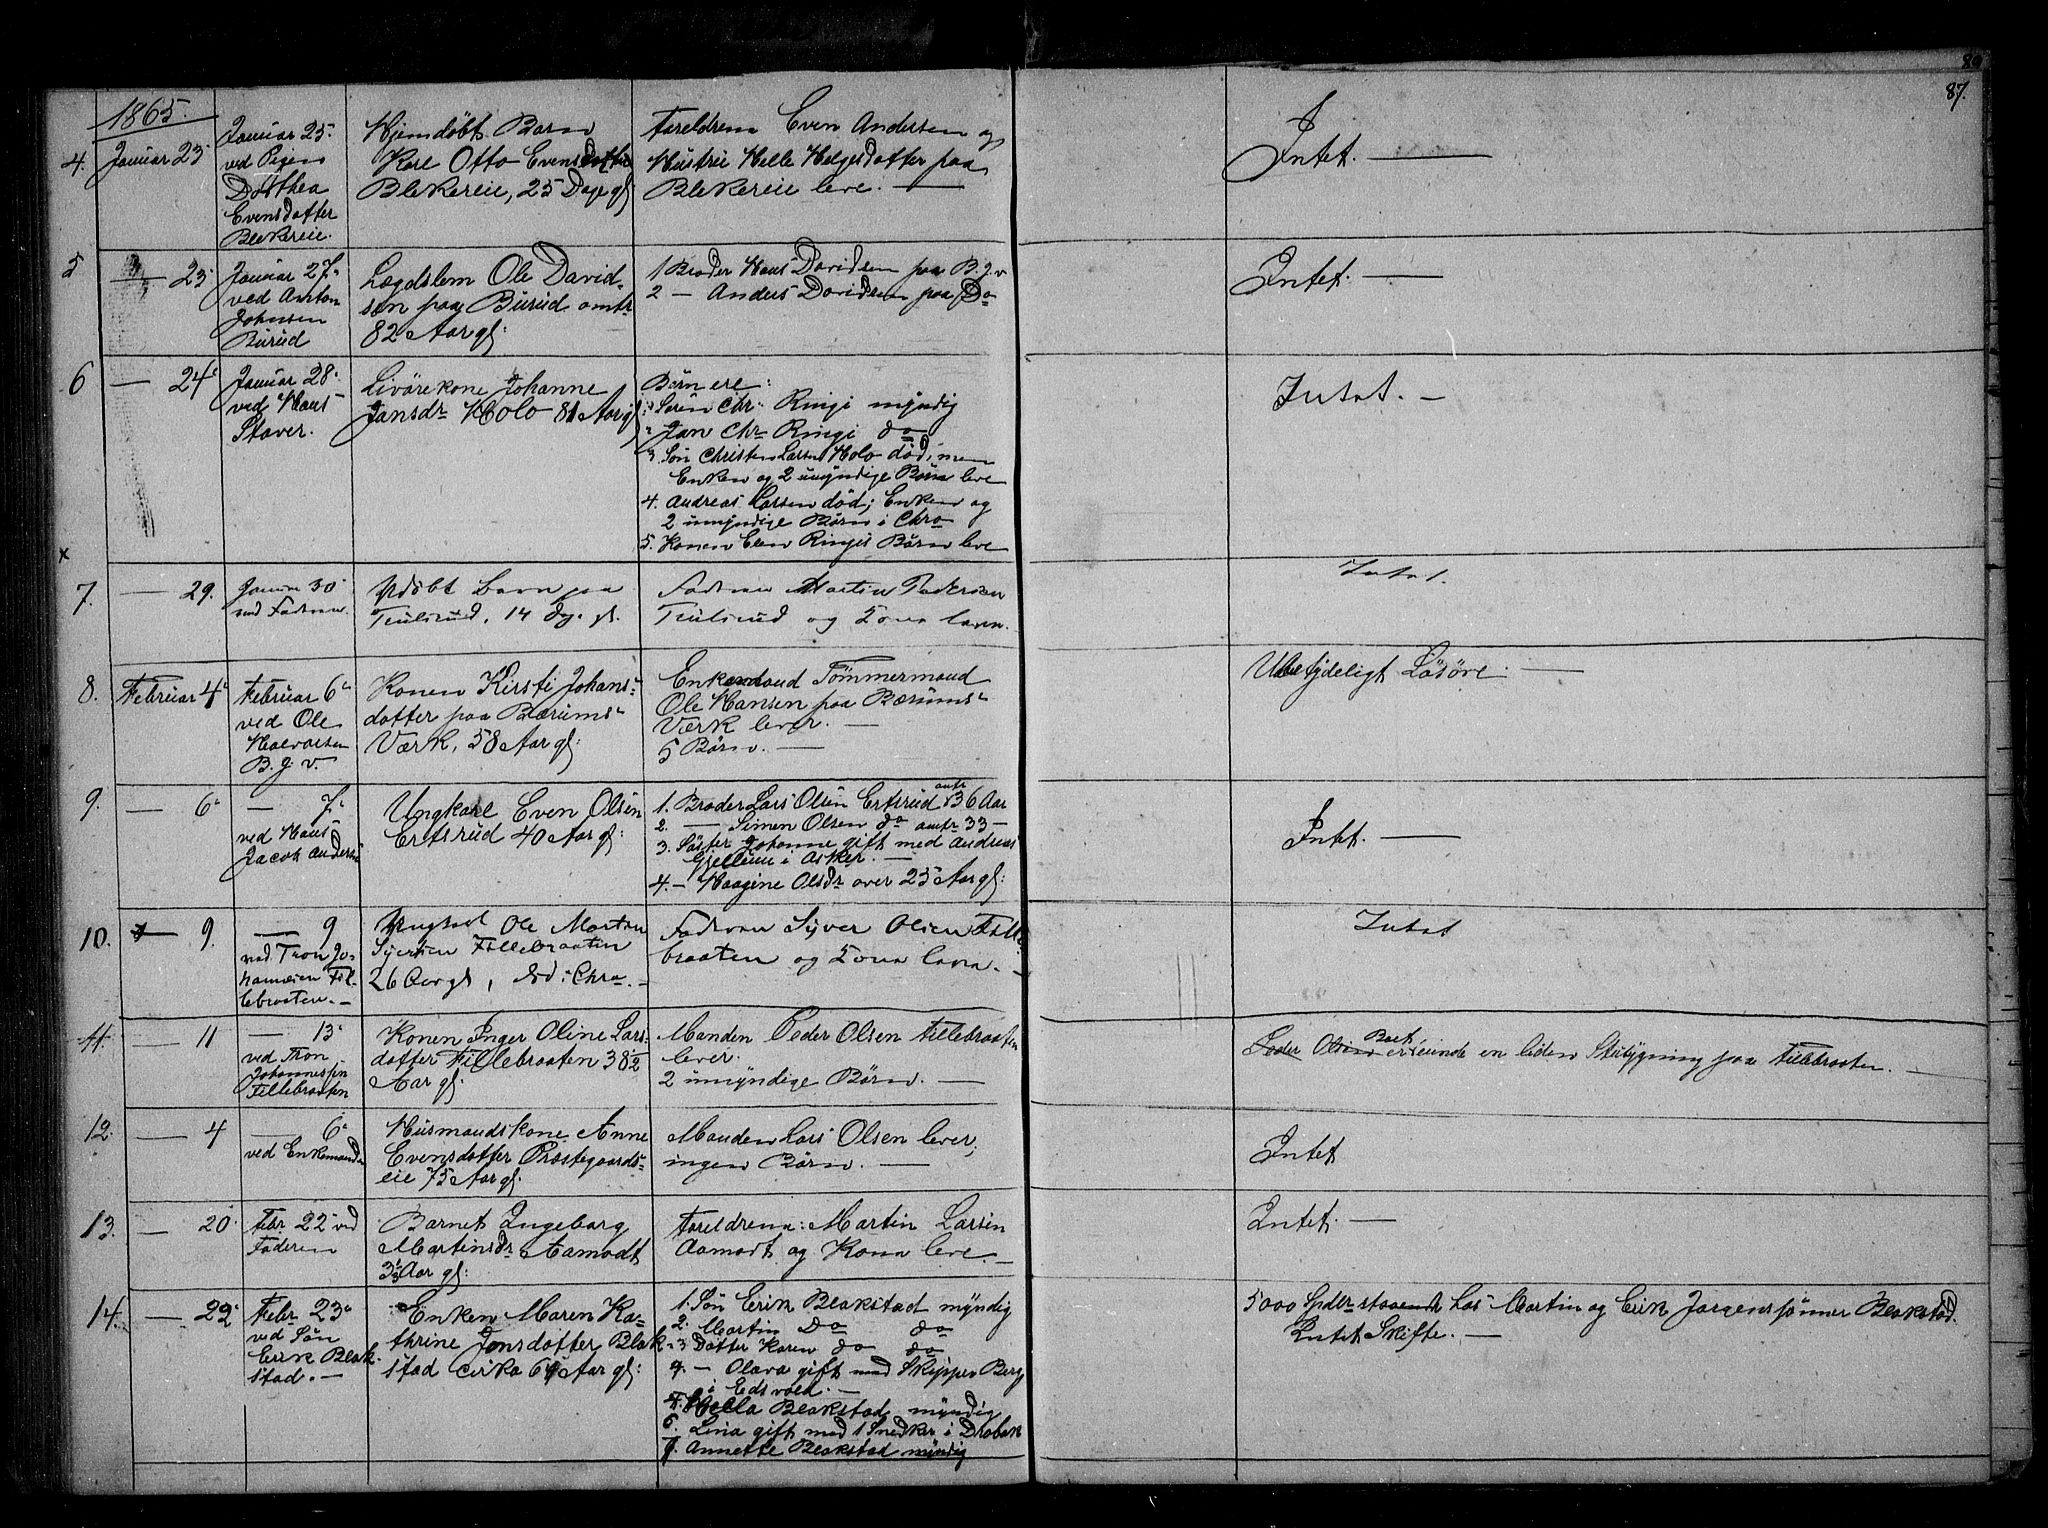 87.
1865.
4. Januar 23
Januar 25
ved Pigen
Dorthea
Evensdatter
Blekereie.
Hjemdøbt Barn
Karl Otto Evensdatter
Blekereie, 25 Dage gl
Foreldrene Even Andersen og
Hustrue Helle Helgesdatter paa
Blekereie leve. —
Intet. —
5 — 23
Januar 27
ved Anton
Johnsen
Burud
Lægdslem Ole David-
sen paa Burud omtr
82 Aar gl:
1 Broder Hans Davidsen paa B. J. v
2 — Anders Davidsen paa Do
Intet. —
6 — 24
Januar 28
ved Hans
Staver.
Livørekone Johanne
Jansdr Holo 81 Aar gl
Børn ere:
1 Søren Chr. Ringi myndig
2 Jan Chr Ringi do
3. Søn Christen Larsen Holo død, men
Enken og 2 umyndige Børn leve
4. Andreas Larsen død; Enken og
2 umyndige Børn i Chra
5. Konen Elen Ringis Børn leve
Intet. —
x
7. — 29.
Januar 30
ved Faderen.
Udøbt Barn paa
Trulsrud, 14 Dg. gl.
Faderen Martin Pedersen
Trulsrud og Kone leve.
Intet.
8. Februar 4
Februar 6
ved Ole
Halvorsen
B. J. v.
Konen Kirsti Johans-
datter paa Bærums
Værk, 58 Aar gl:
Enkemand Tømmermand
Ole Hansen paa Bærums
Værk lever. —
5 Børn. —
Ubetydeligt Løsøre. —
9. — 6
— 7
ved Hans
Jacob Andersen
Ungkarl Even Olsen
Ertsrud 40 Aar gl:
1. Broder Lars Olsen Ertsrud omtr 36 Aar
2. — Simen Olsen do omtr 33 —
3. Søster Johanne gift med Andreas
Gjellum i Asker. —
4. — Haagine Olsdr over 25 Aar gl:
Intet. —
10. — 9.
— 9
ved Tron Jo-
hannesen Fil-
lebraaten. —
Ungkarl Ole Morten
Syversen Fillebraaten
26 Aar gl, død i Chra. —
Faderen Syver Olsen Fille-
braaten og Kone leve. —
Intet
11. — 11
— 13
ved Tron
Johannessen
Fillebraaten
Konen Inger Oline Lars-
datter Fillebraaten 38 1/2
Aar gl:
Manden Peder Olsen Fillebraaten
lever.
2 umyndige Børn. —
Peder Olsen Boet eiende en liden Stubygning paa Fillebraaten. —
12. — 4
— 6
ved Enkemanden
Husmandskone Anne
Evensdatter Præstegaards-
eie 75 Aar gl.
Manden Lars Olsen lever;
ingen Børn. —
Intet
13. — 20
Febr 22 ved
Faderen
Barnet Ingeborg
Martinsdr Aamodt
3 1/3 Aar gl:
Foreldrene: Martin Larsen
Aamodt og Kone leve. —
Intet. —
14. — 22
Febr 23
ved Søn
Erik Blak-
stad. —
Enken Maren Ka-
thrine Jonsdatter Blak-
stad cirka 64 Aar gl:
1. Søn Erik Blakstad myndig
2. Martin Do do
3 Datter Karen do do
4. — Olava gift med Skipper Berg
i Eidsvold. —
5. Hella Blakstad myndig
6. Lina gift med 1 Snedker i Drøbak
7. Annette Blakstad myndig
5000 Spdlr staaende hos Martin og Erik Jørgenssønner Blakstad.
Intet Skifte. —